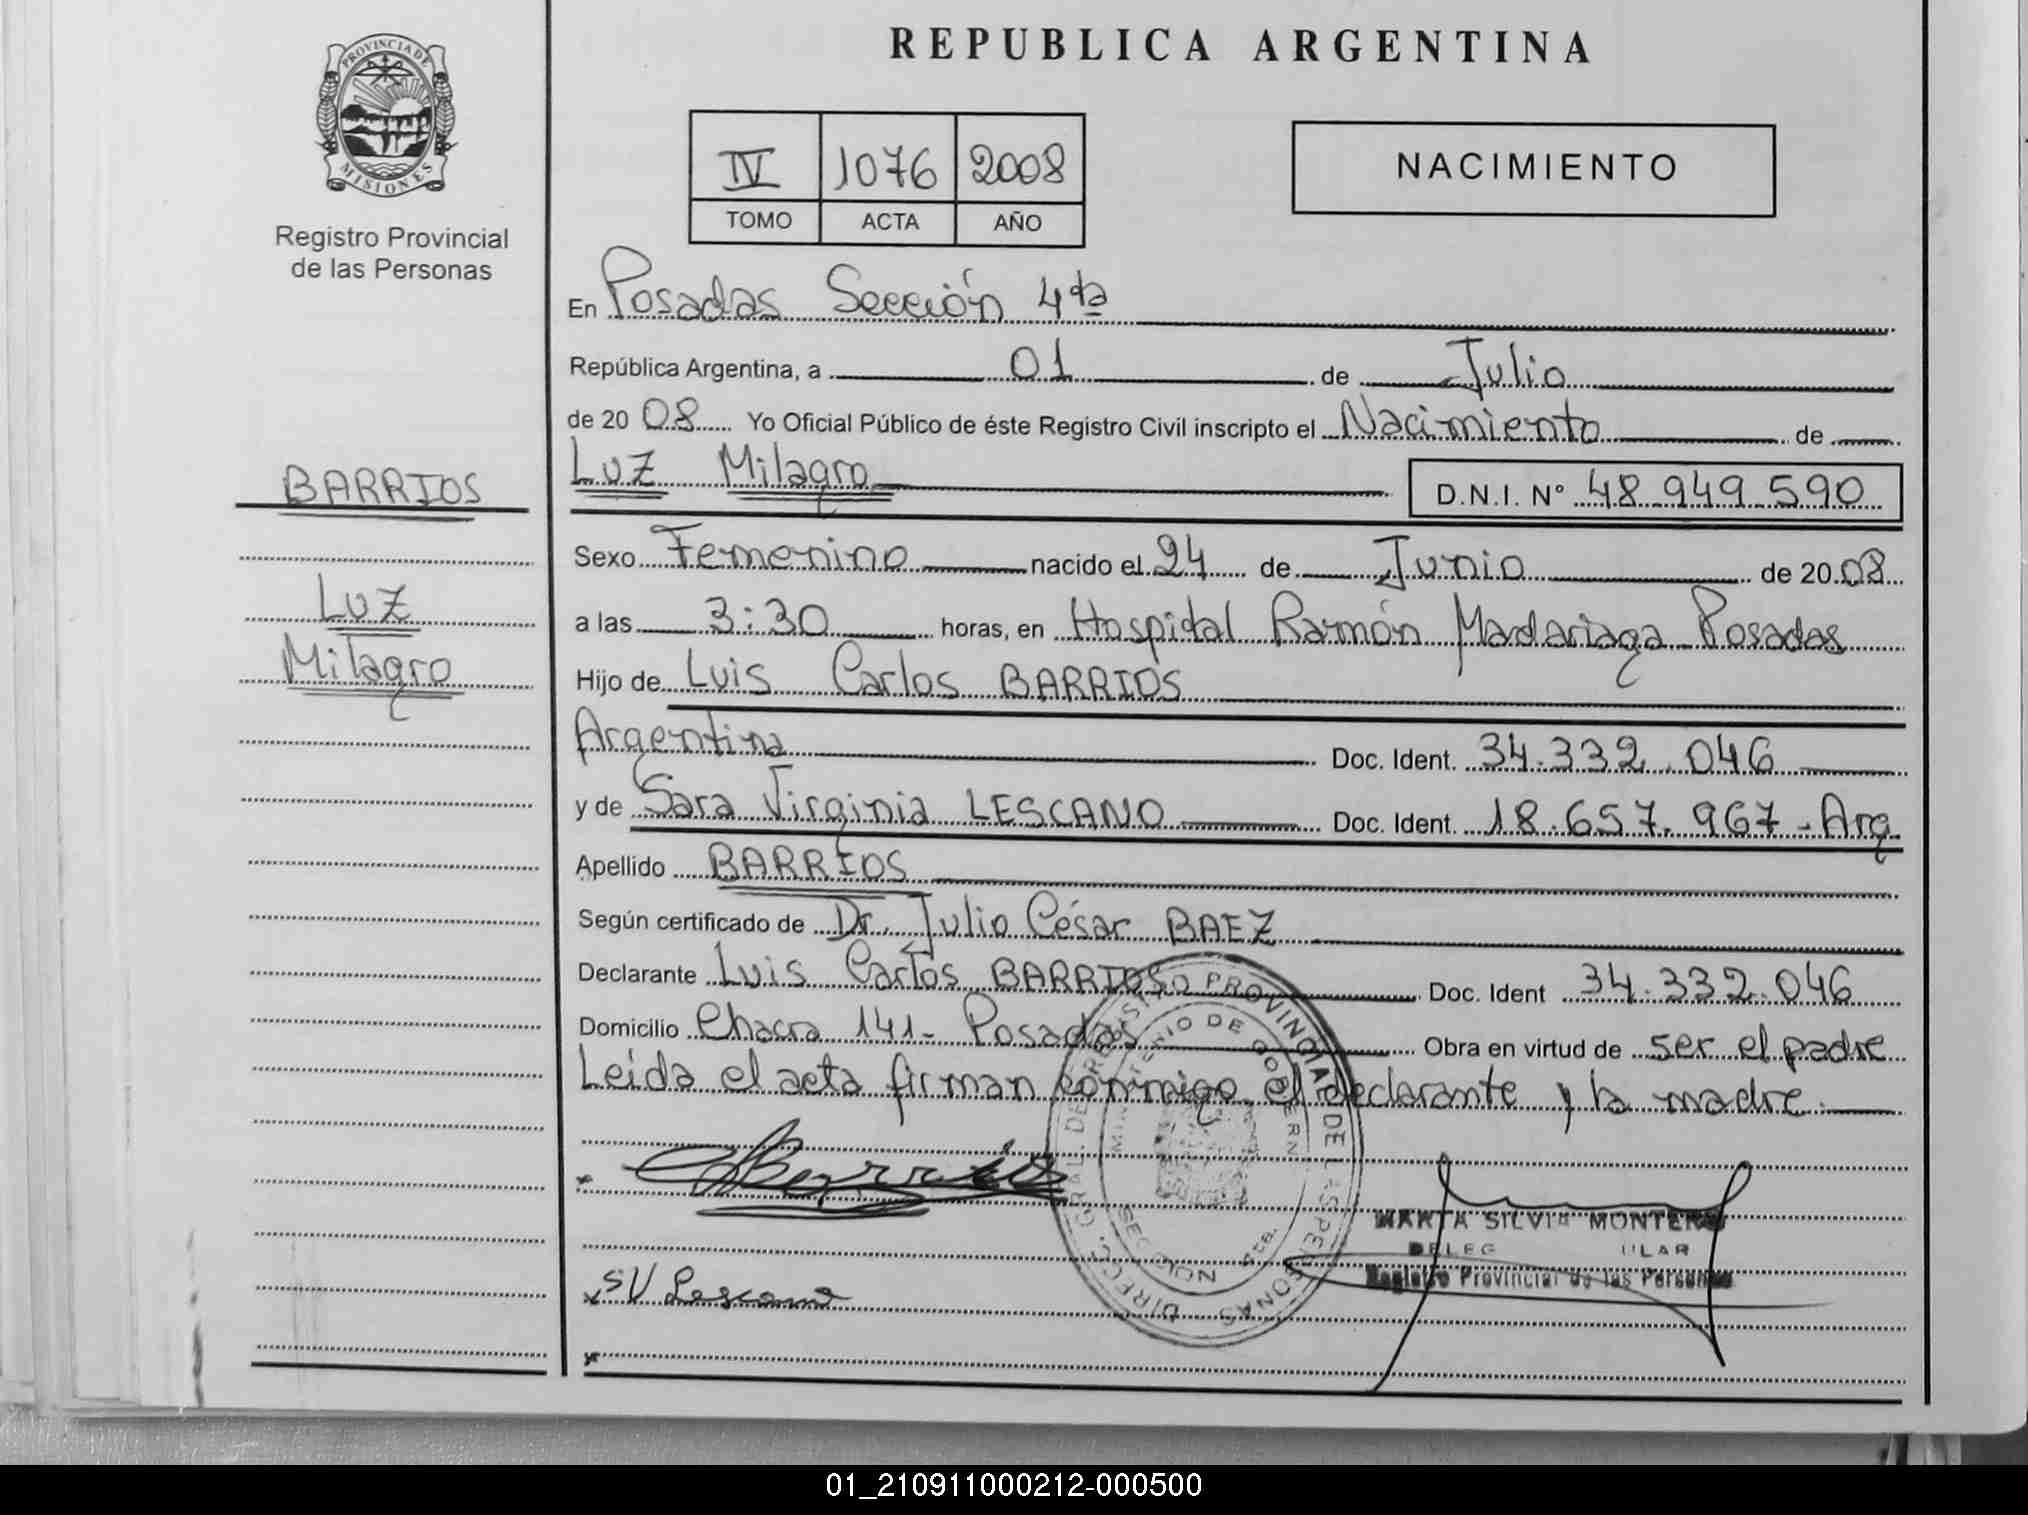 PROVINCIA DE
MISIONES
Registro Provincial
de las Personas
BARRIOS
Luz
Milagro
REPUBLICA ARGENTINA
IV 1076 2008
TOMO ACTA AÑO
NACIMIENTO
En Posadas Sección 4ta
República Argentina, a 01 de Julio
de 2008 Yo Oficial Público de éste Registro Civil inscripto el Nacimiento de
Luz Milagro D.N.I. Nº 48.949.590
Sexo Femenino nacido el 24 de Junio de 2008
a las 3:30 horas, en Hospital Ramón Madariaga Posadas
Hijo de Luis Carlos BARRIOS
Argentina Doc. Ident. 34.332.046
y de Sara Virginia LESCANO Doc. Ident. 18.657.967 - Arg
Apellido BARRIOS
Según certificado de Dr. Julio César BAEZ
Declarante Luis Carlos BARRIOS Doc. Ident 34.332.046
Domicilio Chacra 141 - Posadas Obra en virtud de ser el padre
Leida el acta firman conmigo el declarante y la madre.
Barrios
SV Lescano
MARTA SILVIA MONTERO
Registro Provincial de las Personas
01_210911000212-000500